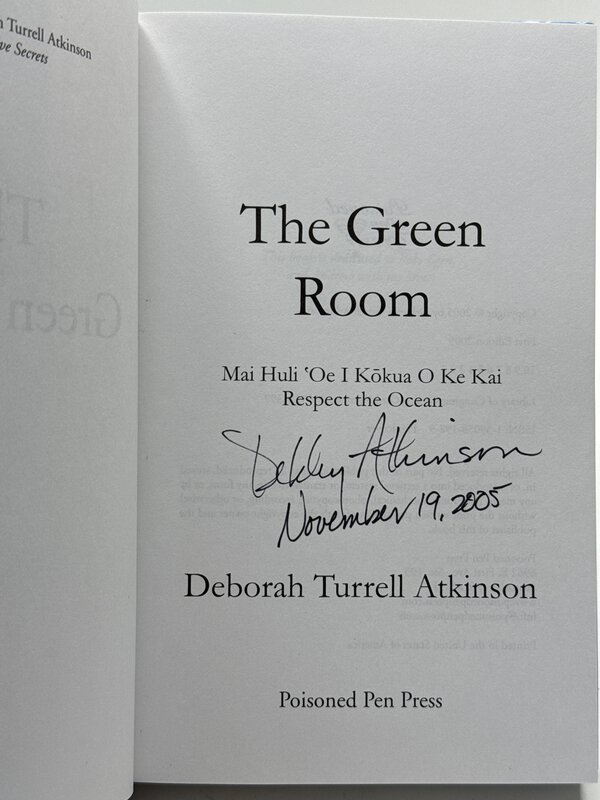 Turrell Atkinson
Secrets
The Green
Room
Mai Huli ‘Oe I Kōkua O Ke Kai
Respect the Ocean
Debby Atkinson
November 19, 2005
Deborah Turrell Atkinson
Poisoned Pen Press